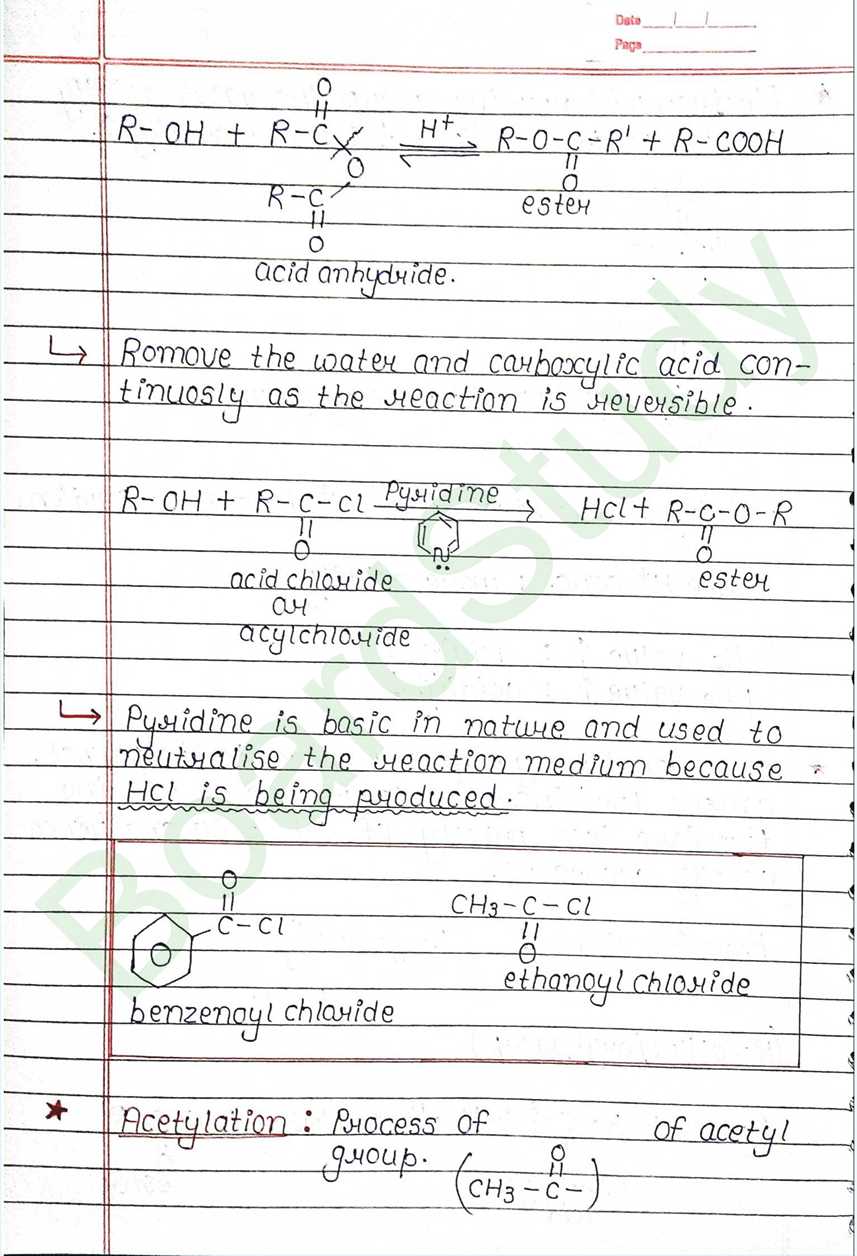 Date / /
Page
O
||
R-OH + R-C
O
H+
R-O-C-R' + R-COOH
||
O
ester
R-C
||
O
acid anhydride.
Romove the water and carboxylic acid con-
tinuosly as the reaction is reversible.
R-OH + R-C-Cl Pyridine HCl + R-C-O-R
|| N ||
O O
acid chloride ester
or
acylchloride
Pyridine is basic in nature and used to
neutralise the reaction medium because
HCl is being produced.
O
||
C-Cl
CH3-C-Cl
||
O
ethanoyl chloride
benzenoyl chloride
Acetylation : Process of of acetyl
group.
O
||
(CH3-C-)
BoardStudy